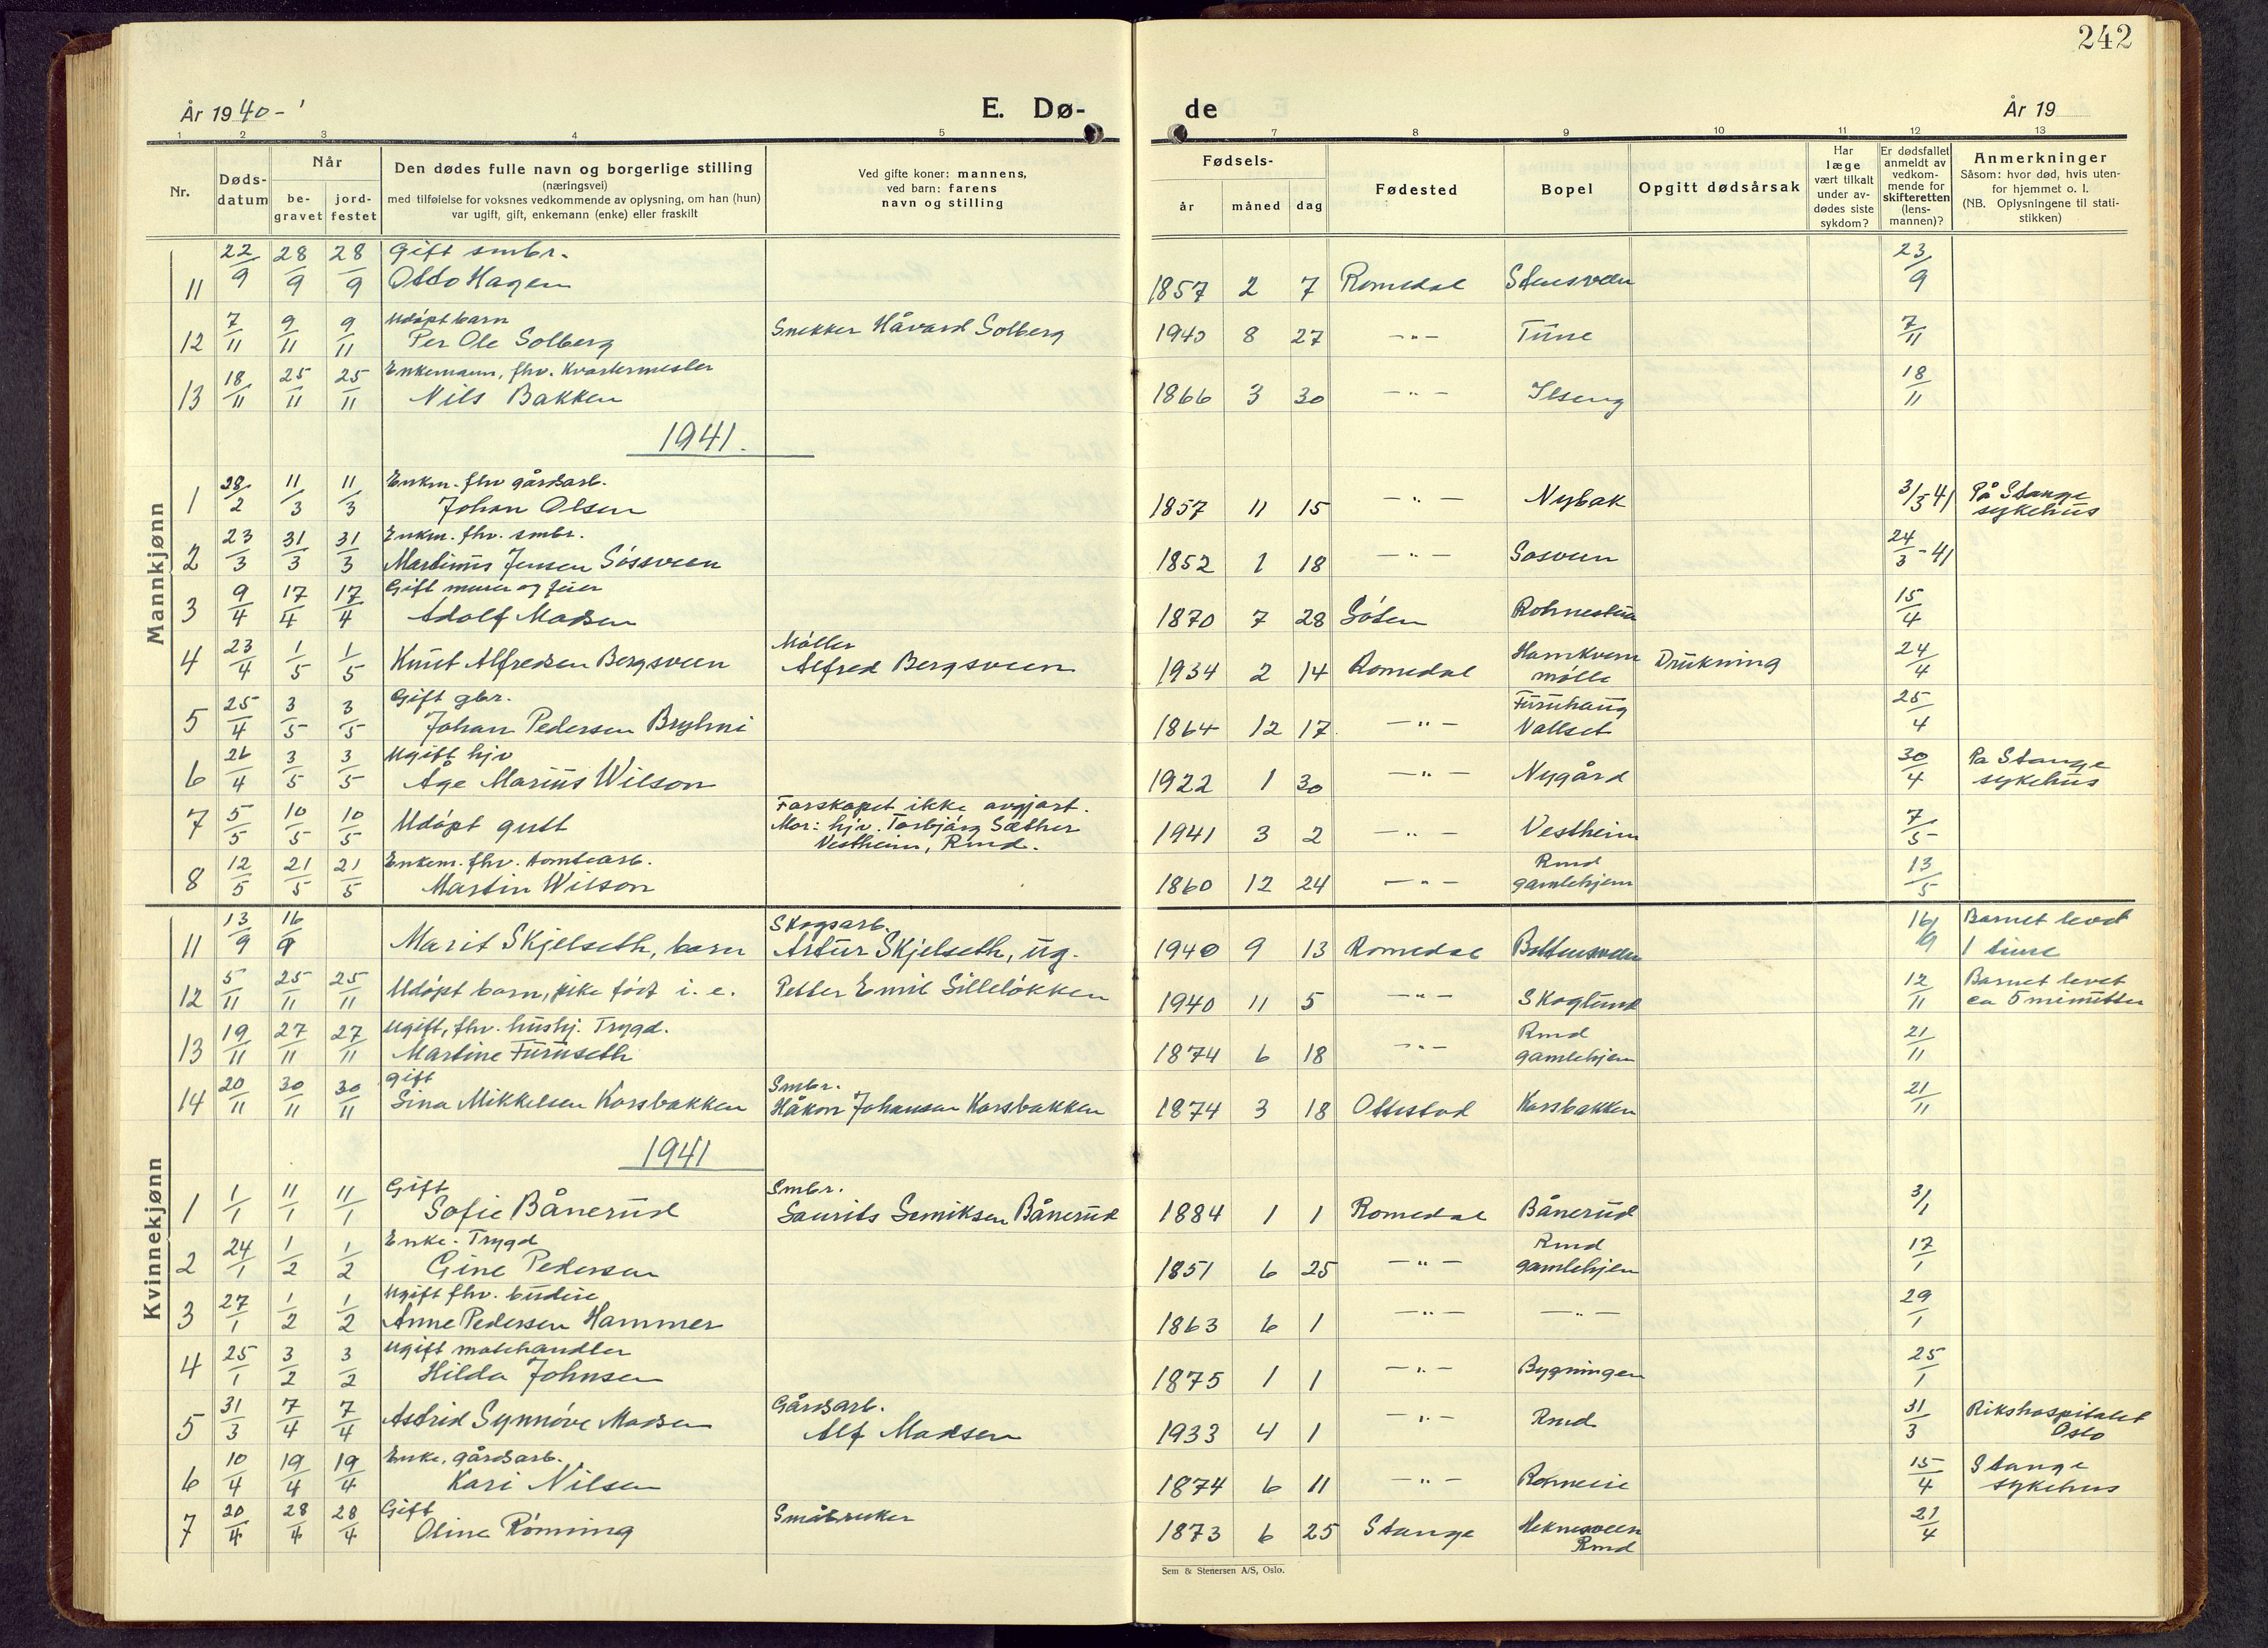 242
År 1940-1
E. Dø-
de
År 19
1 2 3 4 5 7 8 9 10 11 12 13
Nr.
Døds-
datum
Når
be-
gravet
jord-
festet
Den dødes fulle navn og borgerlige stilling
(næringsvei)
med tilføielse for voksnes vedkommende av oplysning, om han (hun)
var ugift, gift, enkemann (enke) eller fraskilt
Ved gifte koner: mannens,
ved barn: farens
navn og stilling
Fødsels-
år måned dag
Fødested
Bopel
Opgitt dødsårsak
Har
læge
vært tilkalt
under av-
dødes siste
sykdom?
Er dødsfallet
anmeldt av
vedkom-
mende for
skifteretten
(lens-
mannen)?
Anmerkninger
Såsom: hvor død, hvis uten-
for hjemmet o. l.
(NB. Oplysningene til stati-
stikken)
Mannkjønn
11 22/9 28/9 28/9 Gift smbr.
Otto Hagen 1857 2 7 Romedal Stensveen 23/9
12 7/11 9/11 9/11 Udøpt barn
Per Ole Solberg Snekker Håvard Solberg 1940 8 27 -"- Tune 7/11
13 18/11 25/11 25/11 Enkemann, fhv. Kvartermester
Nils Bakken 1866 3 30 -"- Ilseng 18/11
1941.
1 28/2 11/3 11/3 Enkm. fhv gårdsarb.
Johan Olsen 1857 11 15 -"- Nybak 3/3 41 På Stange
sykehus
2 23/3 31/3 31/3 Enkm. fhv. smbr.
Martinus Jensen Søsveen 1852 1 18 -"- Sosveen 24/3-41
3 9/4 17/4 17/4 Gift murer og feier
Adolf Madsen 1870 7 28 Løten Rohnestua 15/4
4 23/4 1/5 1/5 Knut Alfredsen Bergsveen Møller
Alfred Bergsveen 1934 2 14 Romedal Hamkvern
mølle Drukning 24/4
5 25/4 3/5 3/5 Gift gbr.
Johan Pedersen Bryhni 1864 12 17 -"- Furuhaug
Vallset 25/4
6 26/4 3/5 3/5 Ugift hjv
Åge Marius Wilson 1922 1 30 -"- Nygård 30/4 Pa Stange
sykehus
7 5/5 10/5 10/5 Udøpt gutt Farskapet ikke avgjort.
Mor: hjv. Torbjørg Sæther
Vestheim, Rmd. 1941 3 2 -"- Vestheim 7/5
8 12/5 21/5 21/5 Enkem. fhv. tomtearb.
Martin Wilson 1860 12 24 -"- Rmd
gamlehjem 13/5
Kvinnekjønn
11 13/9 16/9 Marit Skjelseth, barn Skogsarb.
Artur Skjelseth, ug. 1940 9 13 Romedal Bottensveen 16/9 Barnet levet
1 time
12 5/11 25/11 25/11 Udøpt barn, pike født i. e. Petter Emil Lilleløkken 1940 11 5 -"- Skoglund 12/11 Barnet levet
ca 5 minutter
13 19/11 27/11 27/11 Ugift, fhv. hushj. Trygd.
Martine Furuseth 1874 6 18 -"- Rmd
gamlehjem 21/11
14 20/11 30/11 30/11 gift
Lina Mikkelsen Korsbakken Smbr.
Håkon Johansen Korsbakken 1874 3 18 Ottestad Korsbakken 21/11
1941
1 1/1 11/1 11/1 Gift
Sofie Bånerud Smbr.
Laurits Lemiksen Bånerud 1884 1 1 Romedal Bånerud 3/1
2 24/1 1/2 1/2 Enke. Trygd
Gine Pedersen 1851 6 25 -"- Rmd
gamlehjem 17/1
3 27/1 1/2 1/2 Ugift fhv. budeie
Anne Pedersen Hammer 1863 6 1 -"- -"- 29/1
4 25/1 3/2 3/2 Ugift motehandler
Hilda Johnsen 1875 1 1 -"- Bygningen 25/1
5 31/3 7/4 7/4 Astrid Synnøve Madsen Gårdsarb.
Alf Madsen 1933 4 1 -"- Rmd 31/3 Rikshospitalet
Oslo
6 10/4 19/4 19/4 Enke, gårdsarb.
Kari Nilsen 1874 6 11 -"- 15/4 Stange
sykehus
7 20/4 28/4 28/4 Gift
Oline Rønning Småbruker 1873 6 25 Stange Heknesveen
Rmd 21/4
Sem & Stenersen A/S, Oslo.